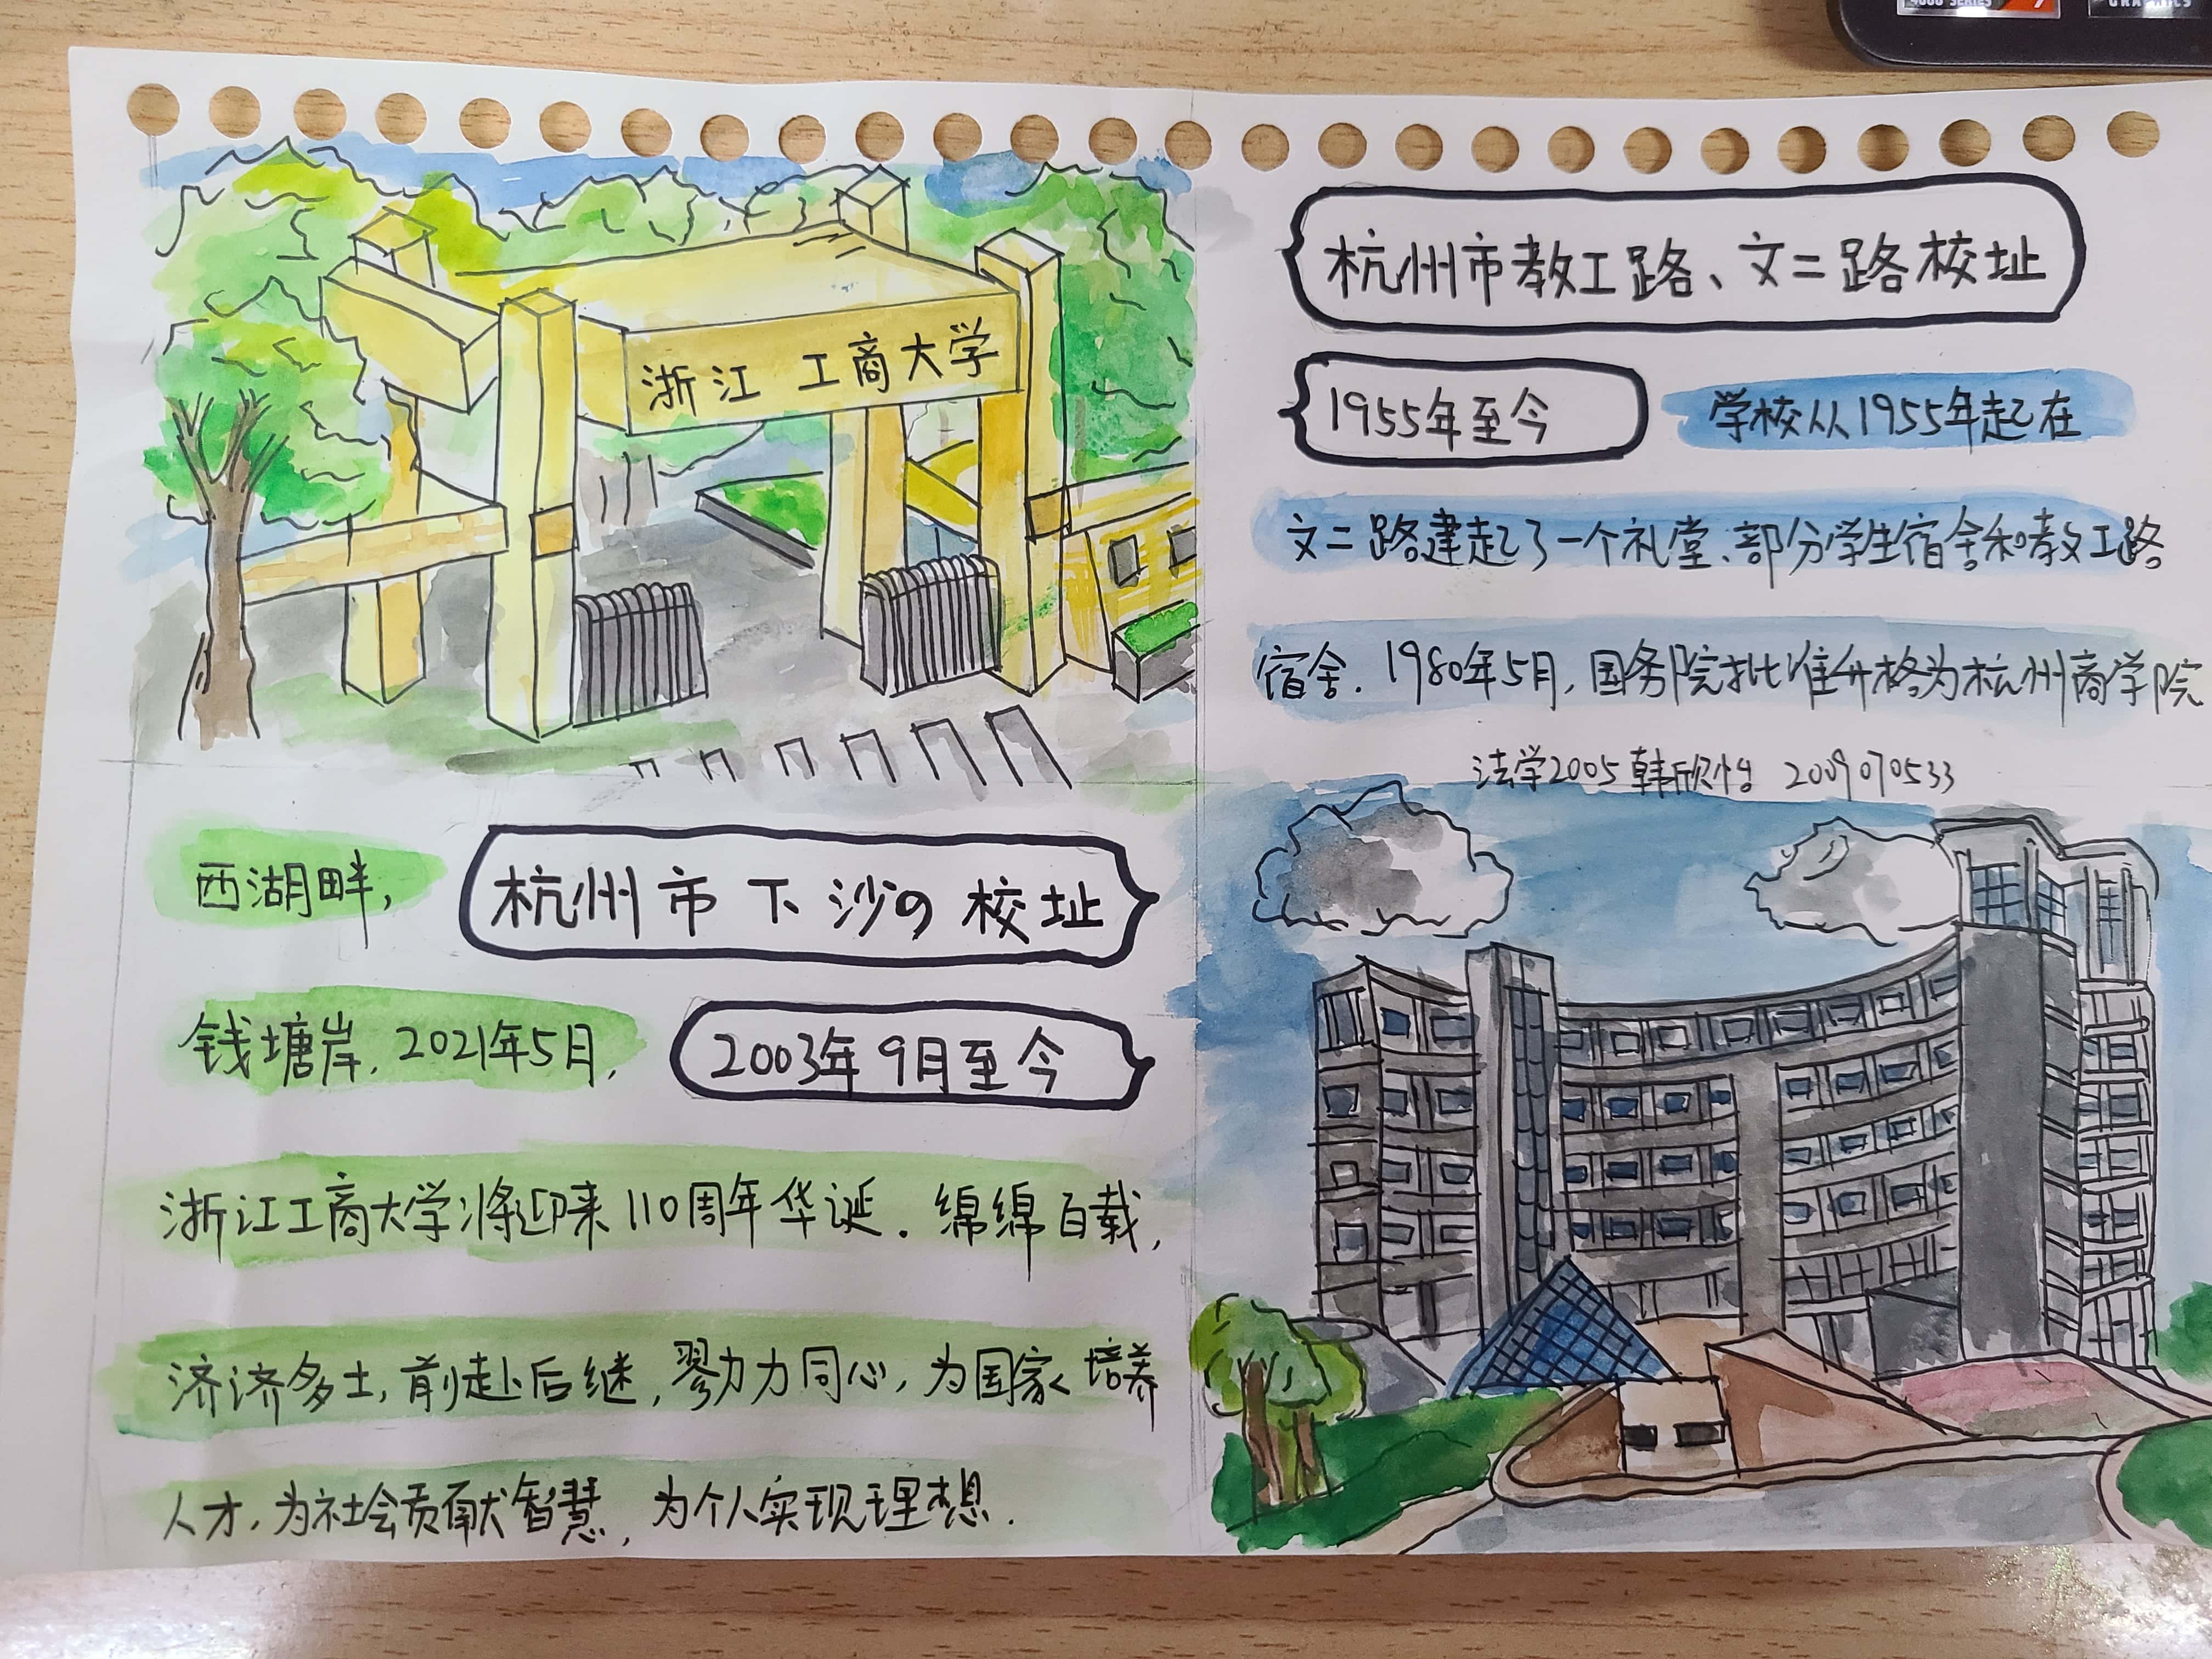 浙江工商大学
杭州市教工路、文二路校址
1955年至今
学校从1955年起在
文二路建起了一个礼堂、部分学生宿舍和教工路
宿舍. 1980年5月, 国务院批准升格为杭州商学院
法学2005 韩欣怡 2009070533
西湖畔,
杭州市下沙の校址
钱塘岸, 2021年5月,
2003年9月至今
浙江工商大学将迎来110周年华诞. 绵绵百载,
济济多士, 前赴后继, 勠力同心, 为国家培养
人才, 为社会贡献智慧, 为个人实现理想.